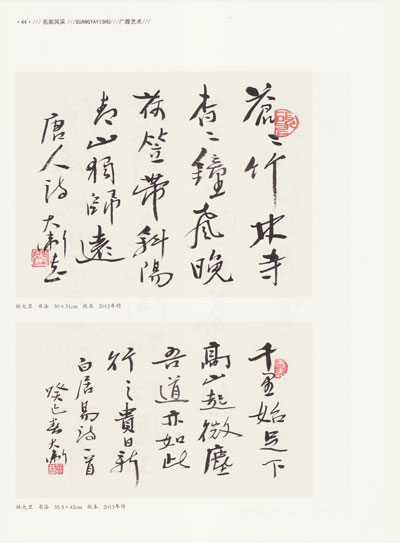 ·44·///名家风采///GUANGYAYISHU///广雅艺术///
蒼〻竹林寺
杳〻鐘聲晚
荷笠帶斜陽
青山獨歸遠
唐人詩 大衛書
林大卫 书法 30×51cm 纸本 2013年作
千里始足下
高山起微塵
吾道亦如此
行之貴日新
白居易詩一首
癸巳春大衛
林大卫 书法 35.5×42cm 纸本 2013年作